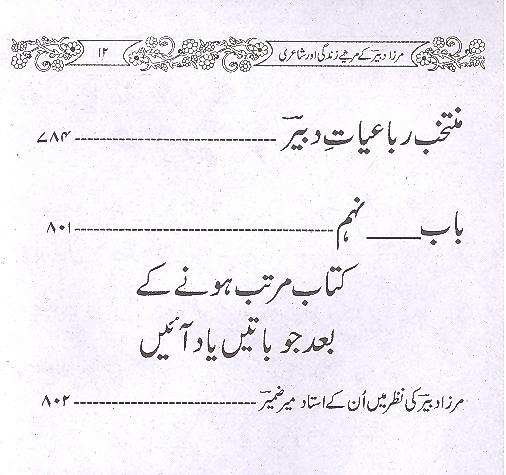 مرزا دبیرؔ کے مرثیے زندگی اور شاعری ۱۲
منتخب رباعیاتِ دبیرؔ ------------------------ ۷۸۴
باب ____ نہم ------------------------ ۸۰۱
کتاب مرتب ہونے کے
بعد جو باتیں یاد آئیں
مرزا دبیرؔ کی نظر میں اُن کے استاد میر ضمیرؔ ------------------------ ۸۰۲